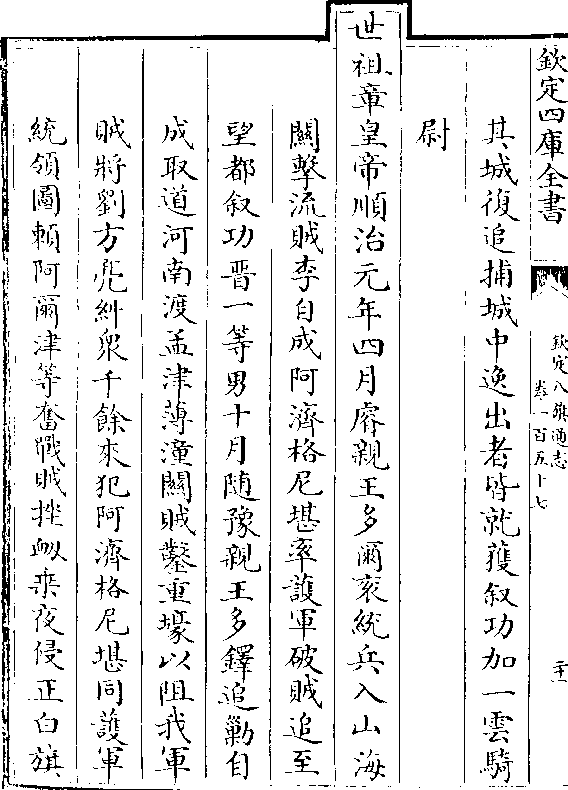 欽定四庫全書
欽定八旗通志
卷一百五十七
二十一
其城復追捕城中逸出者皆就獲叙功加一雲騎
尉
世祖章皇帝順治元年四月睿親王多爾衮統兵入山海
關擊流賊李自成阿濟格尼堪率護軍破賊追至
望都叙功晋一等男十月随豫親王多鐸追勦自
成取道河南渡孟津薄潼關賊鑿重壕以阻我軍
賊將劉方亮糾衆千餘來犯阿濟格尼堪同護軍
統領圖頼阿爾津等奮戰賊挫衂乘夜侵正白旗